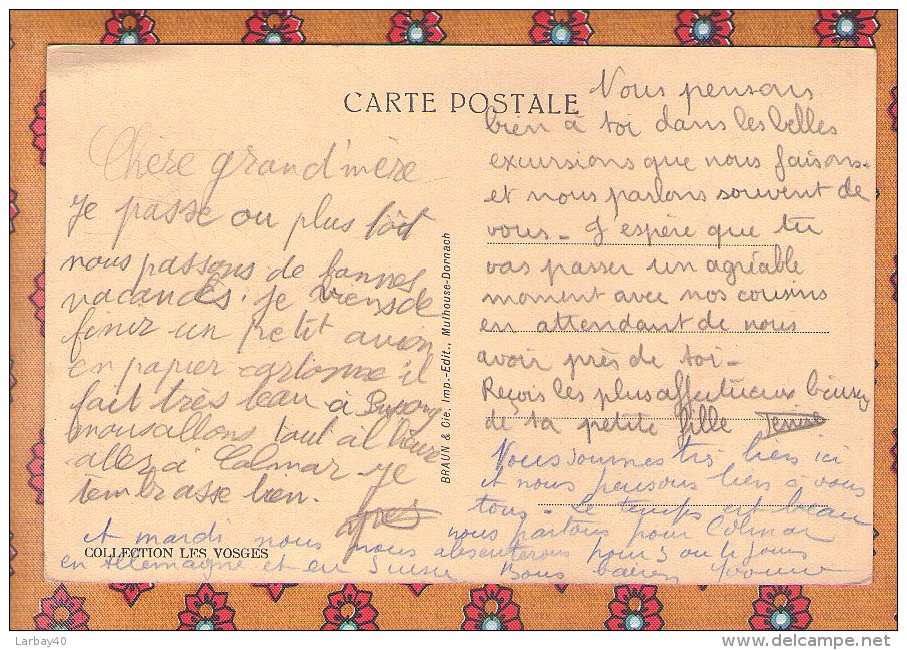 CARTE POSTALE
Chère grand'mère
Je passe ou plus tôt
nous passons de bonnes
vacances. Je viens de
finir un petit avion
en papier cartonné il
fait très beau a
nous allons tout à l'heure
allez à Colmar je
t'embrasse bien.
Nous pensons
bien à toi dans les belles
excursions que nous faisons
et nous parlons souvent de
vous - J'espère que tu
vas passer un agréable
moment avec nos cousins
en attendant de nous
avoir près de toi -
Reçois les plus affectueux
de ta petite fille
Nous sommes très bien ici
et nous pensons bien à vous
tous - Le temps est beau
nous partons pour Colmar
et mardi nous nous absenterons pour 3 ou 4 jours
en Allemagne et en Suisse Bons Yvonne
BRAUN & Cie, Imp.-Edit., Mulhouse-Dornach
COLLECTION LES VOSGES
Larbay40
www.delcampe.net